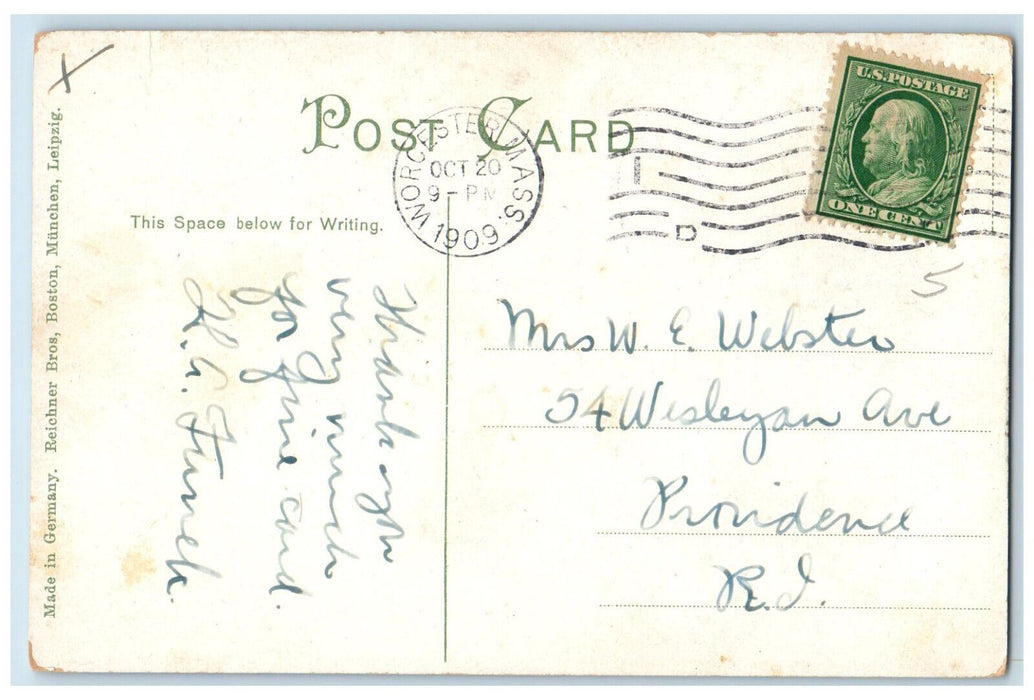 POST CARD
WORCESTER, MASS.
OCT 20
9 - PM
1909
D
U.S. POSTAGE
ONE CENT
This Space below for Writing.
Made in Germany. Reichner Bros, Boston, München, Leipzig.
X
5
Thank you
very much
for fine card.
Mrs W. E. Webster
54 Wesleyan Ave
Providence
R.I.